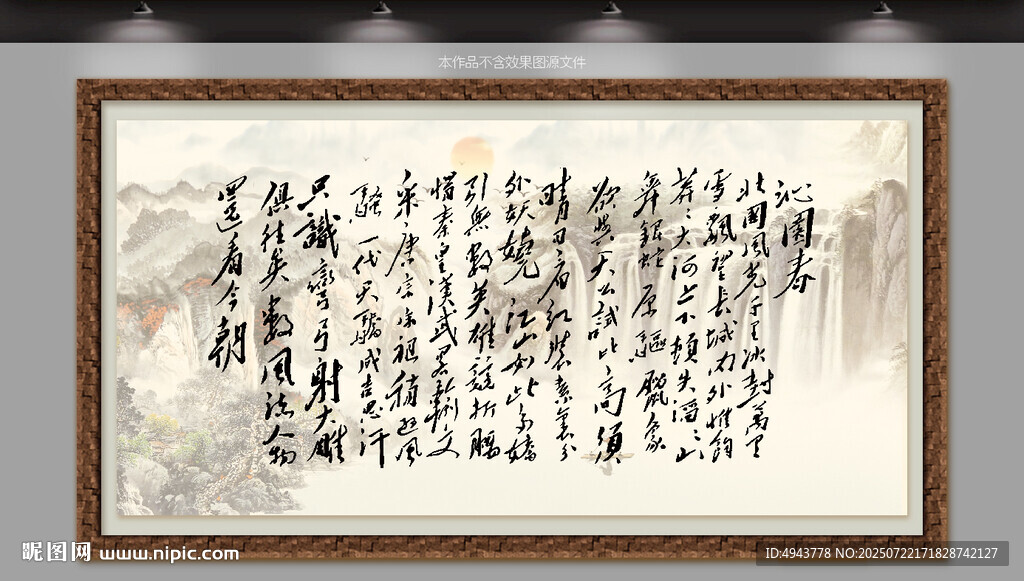 本作品不含效果图源文件
沁園春
北國風光千里冰封萬里
雪飄望長城內外惟餘
莽〻大河上下頓失滔〻山
舞銀蛇原驅臘象
欲與天公試比高須
晴日看紅裝素裹分
外妖嬈江山如此多嬌
引無數英雄競折腰
惜秦皇漢武略輸文
采唐宗宋祖稍遜風
騷一代天驕成吉思汗
只識彎弓射大雕
俱往矣數風流人物
還看今朝
昵图网 www.nipic.com
ID:4943778 NO:20250722171828742127